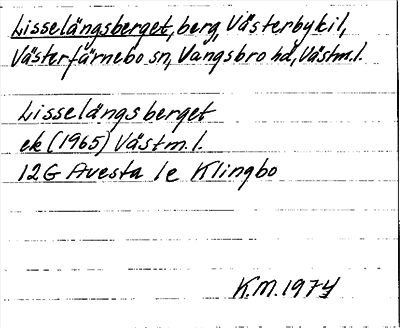 Lisselängsberget, berg, Västerbykil,
Västerfärnebo sn, Vangsbro hd, Västm.l.
Lisselängsberget
ek (1965) Västm.l.
12G Avesta 1e Klingbo
K.M. 1974